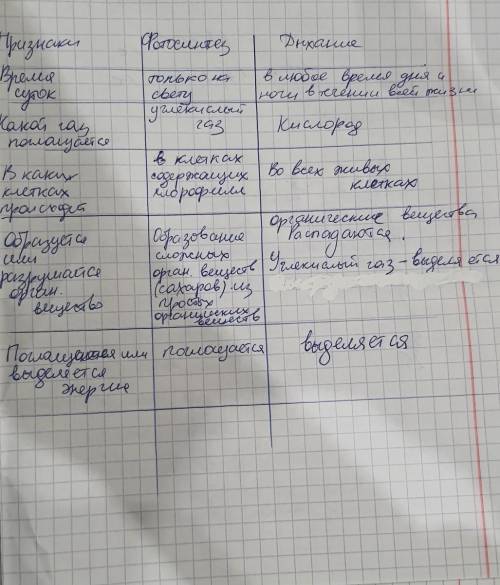 Признаки Фотосинтез Дыхание
Время только на в любое время дня и
суток свету ночи в течении всей жизни
Какой газ углекислый
поглащается газ Кислород
В каких в клетках Во всех живых
клетках содержащих клетках
происходит хлорофилл
органические вещества
Образуется Образование Распадаются.
или сложных
разрушается орган. веществ Углекислый газ - выделяется
орган. (сахаров) из
вещество простых
органических
веществ
Поглащается или поглощается выделяется
выделяется
энергия